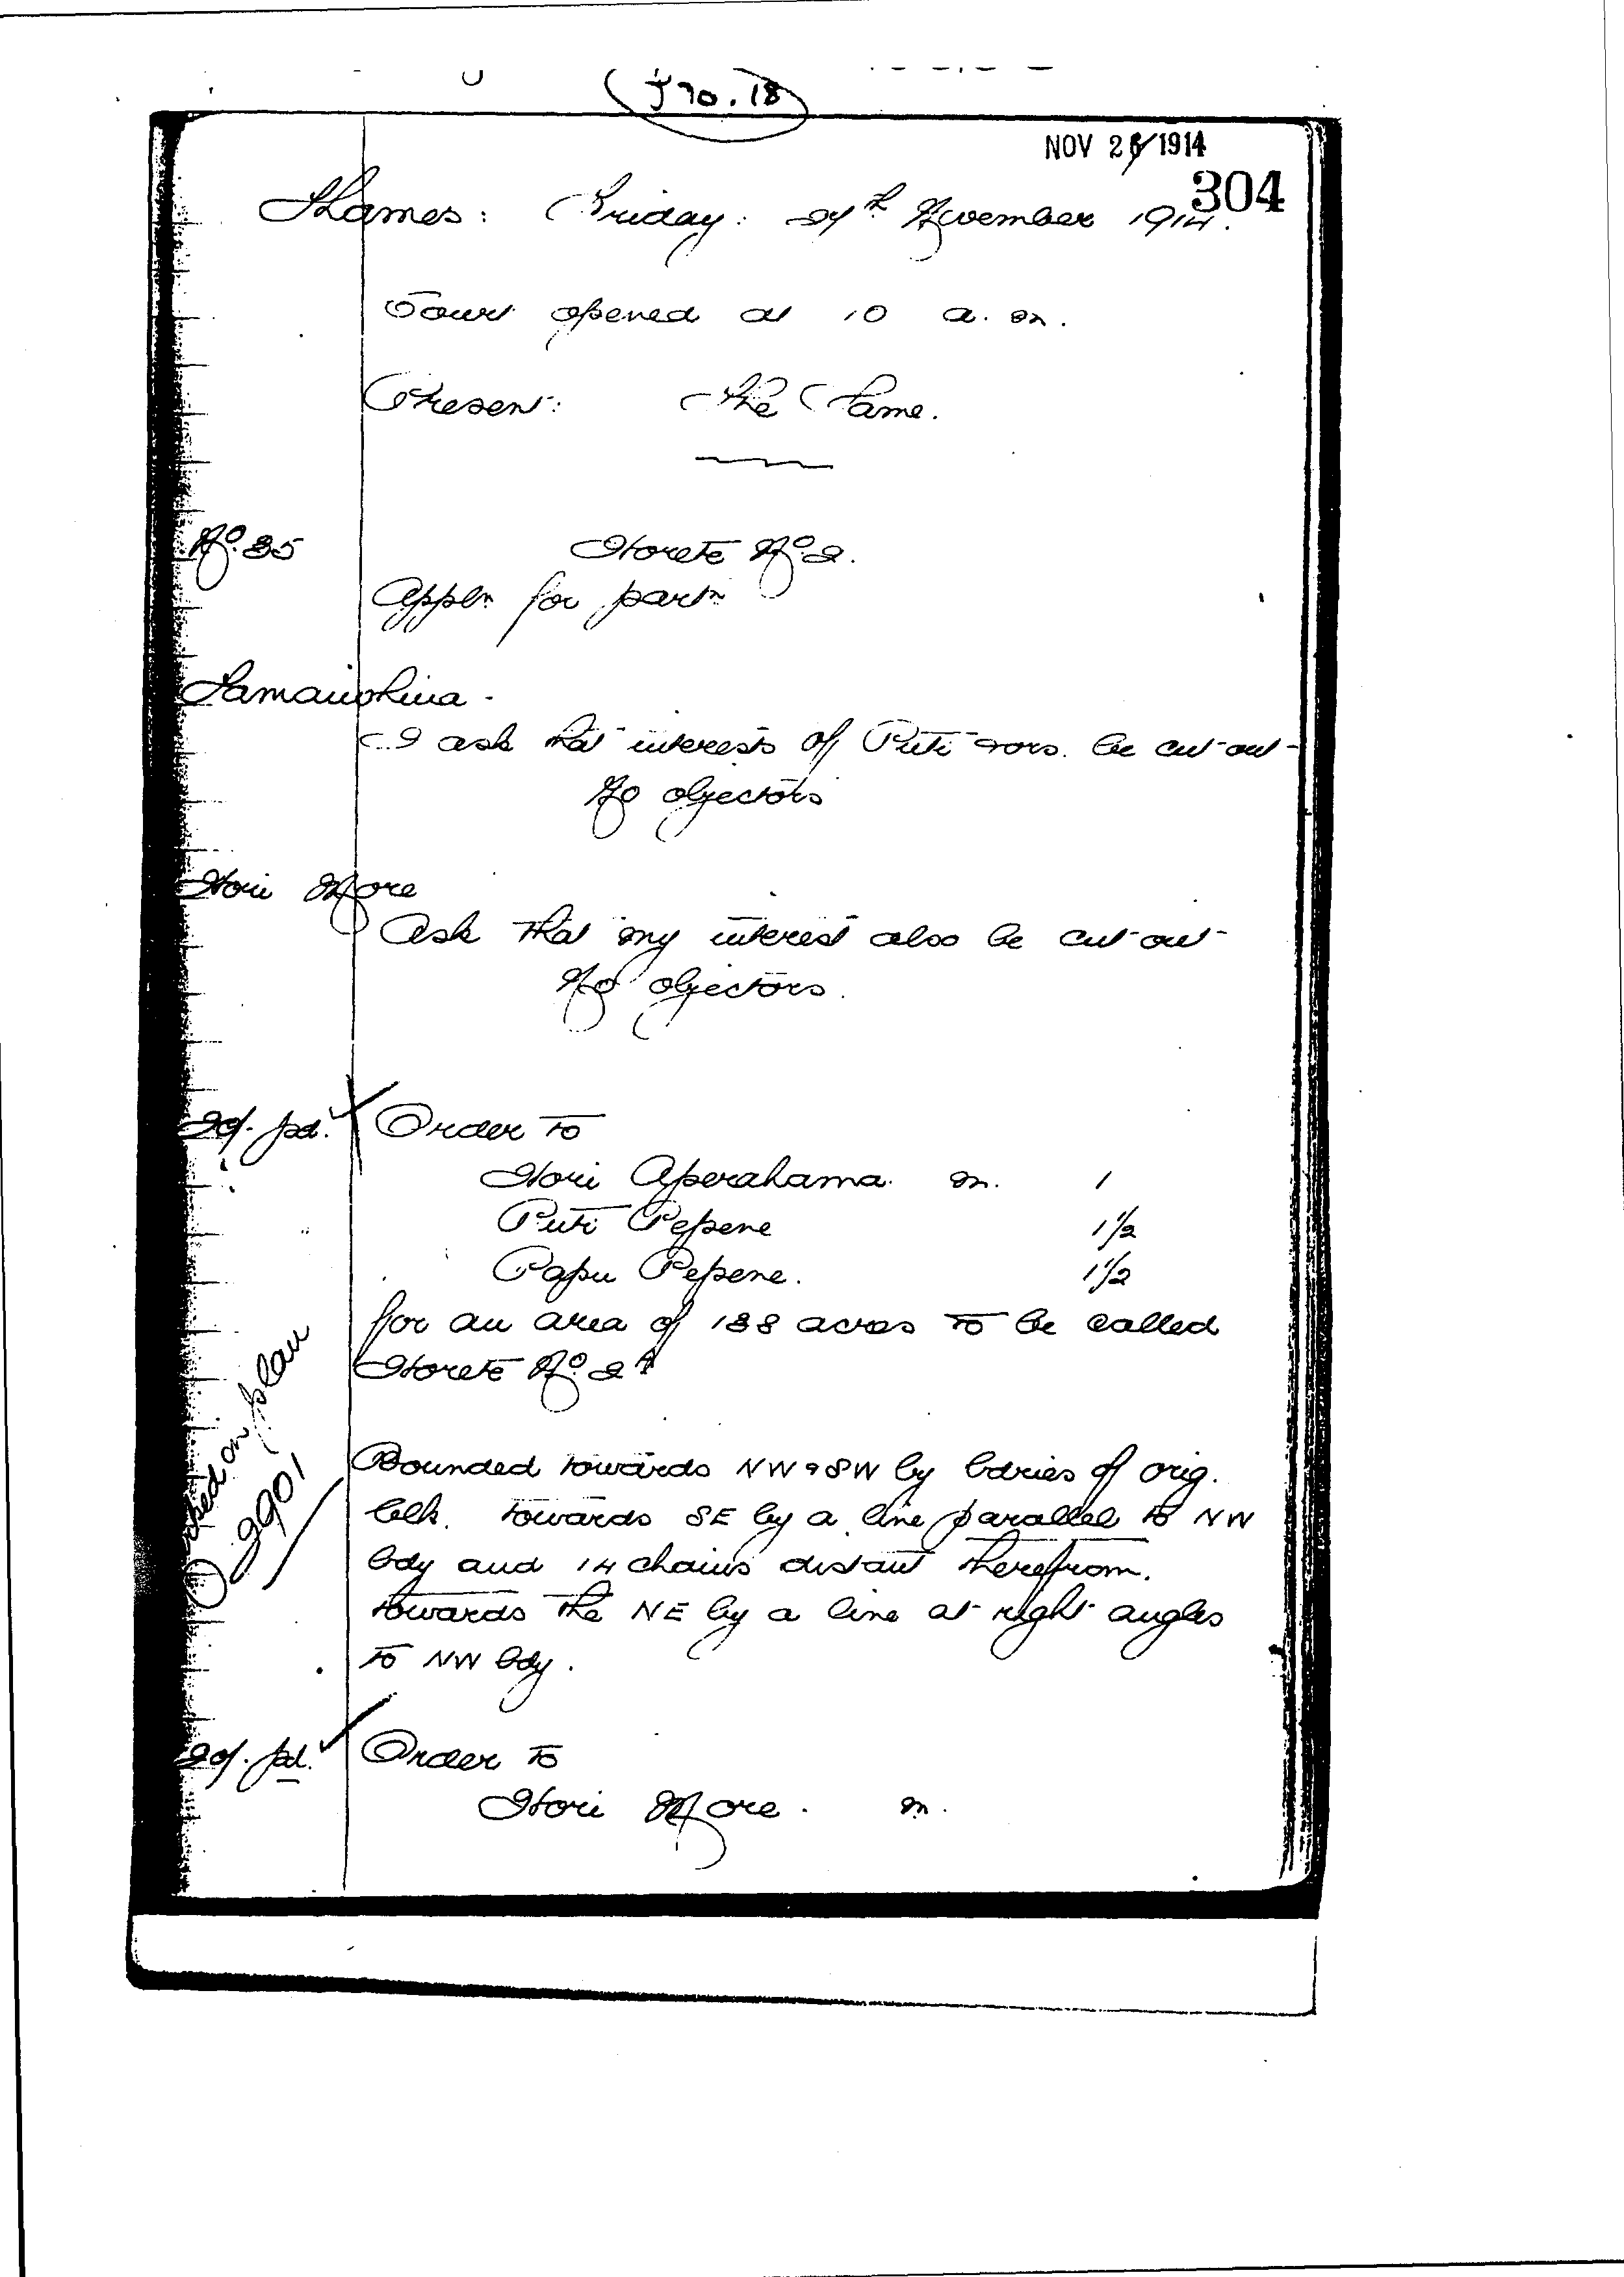 J70.18
NOV 26/1914
304
Thames: Friday: 27th November 1914.
Court opened at 10 a.m.
Present: The Same.
No. 35 Horete No. 2.
Appln for partn
Tamaiohua -
I ask that interests of Puti & ors. be cut out -
No objectors
Hori More
Ask that my interest also be cut out -
No objectors.
20/- pd. Order to
Hori Aperahama. m. 1
Puti Pepene 1 1/2
Papu Pepene. 1 1/2
for an area of 188 acres to be called
Horete No. 2A
on plan
9901
Bounded towards NW & SW by bdries of orig.
blk. towards SE by a line parallel to NW
bdy and 14 chains distant therefrom.
towards the NE by a line at right angles
to NW bdy.
20/- pd. Order to
Hori More. m.